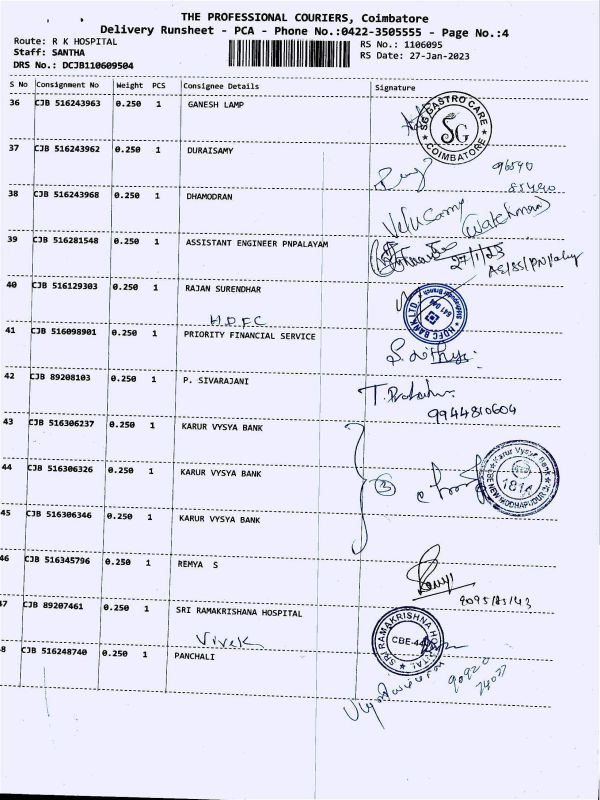 THE PROFESSIONAL COURIERS, Coimbatore
Delivery Runsheet - PCA - Phone No.:0422-3505555 - Page No.:4
Route: R K HOSPITAL
RS No.: 1106095
Staff: SANTHA
RS Date: 27-Jan-2023
DRS No.: DCJB110609504
S No Consignment No Weight PCS Consignee Details Signature
36 CJB 516243963 0.250 1 GANESH LAMP
SG GASTRO CARE
SG
COIMBATORE
37 CJB 516243962 0.250 1 DURAISAMY
96590
85490
38 CJB 516243968 0.250 1 DHAMODRAN
(Watchman)
39 CJB 516281548 0.250 1 ASSISTANT ENGINEER PNPALAYAM
27/1/23
40 CJB 516129303 0.250 1 RAJAN SURENDHAR
HDFC BANK LTD.
H.D.F.C
41 CJB 516098901 0.250 1 PRIORITY FINANCIAL SERVICE
42 CJB 89208103 0.250 1 P. SIVARAJANI
9944810604
43 CJB 516306237 0.250 1 KARUR VYSYA BANK
44 CJB 516306326 0.250 1 KARUR VYSYA BANK
3
Karur Vysya Bank
45 CJB 516306346 0.250 1 KARUR VYSYA BANK
46 CJB 516345796 0.250 1 REMYA S
47 CJB 89207461 0.250 1 SRI RAMAKRISHANA HOSPITAL
SRI RAMAKRISHNA HOSPITAL
CBE-44
Vivek
48 CJB 516248740 0.250 1 PANCHALI